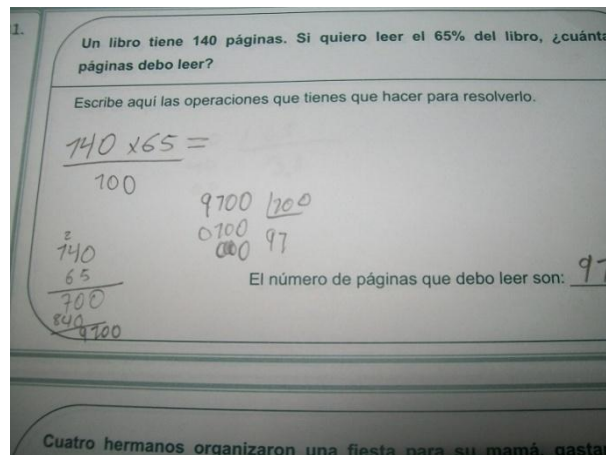 1.
Un libro tiene 140 páginas. Si quiero leer el 65% del libro, ¿cuánta
páginas debo leer?
Escribe aquí las operaciones que tienes que hacer para resolverlo.
140 x65 =
100
9100 100
0100 91
000
2
140
65
700
840
9100
El número de páginas que debo leer son: 91
Cuatro hermanos organizaron una fiesta para su mamá, gasta